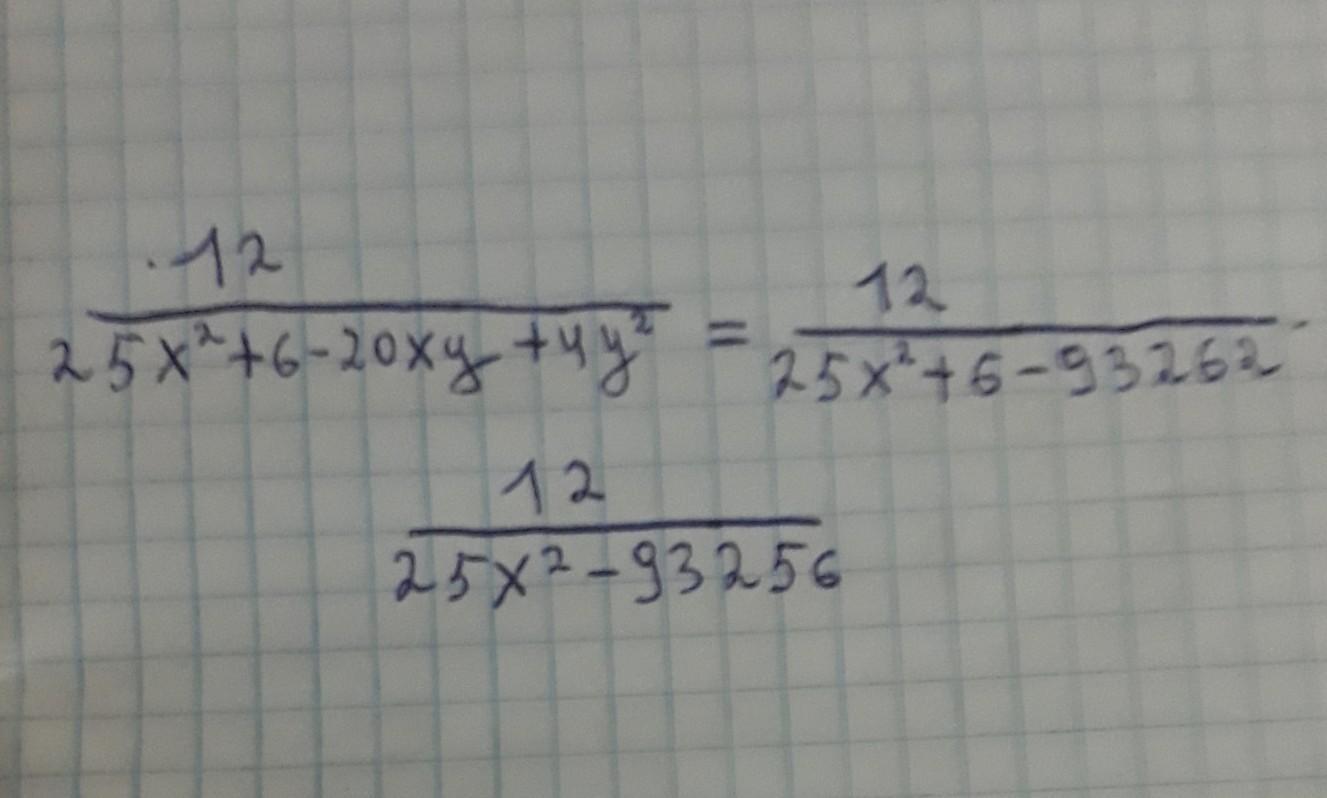 12 / 25x² + 6 - 20xy + 4y² = 12 / 25x² + 6 - 93262
12 / 25x² - 93256